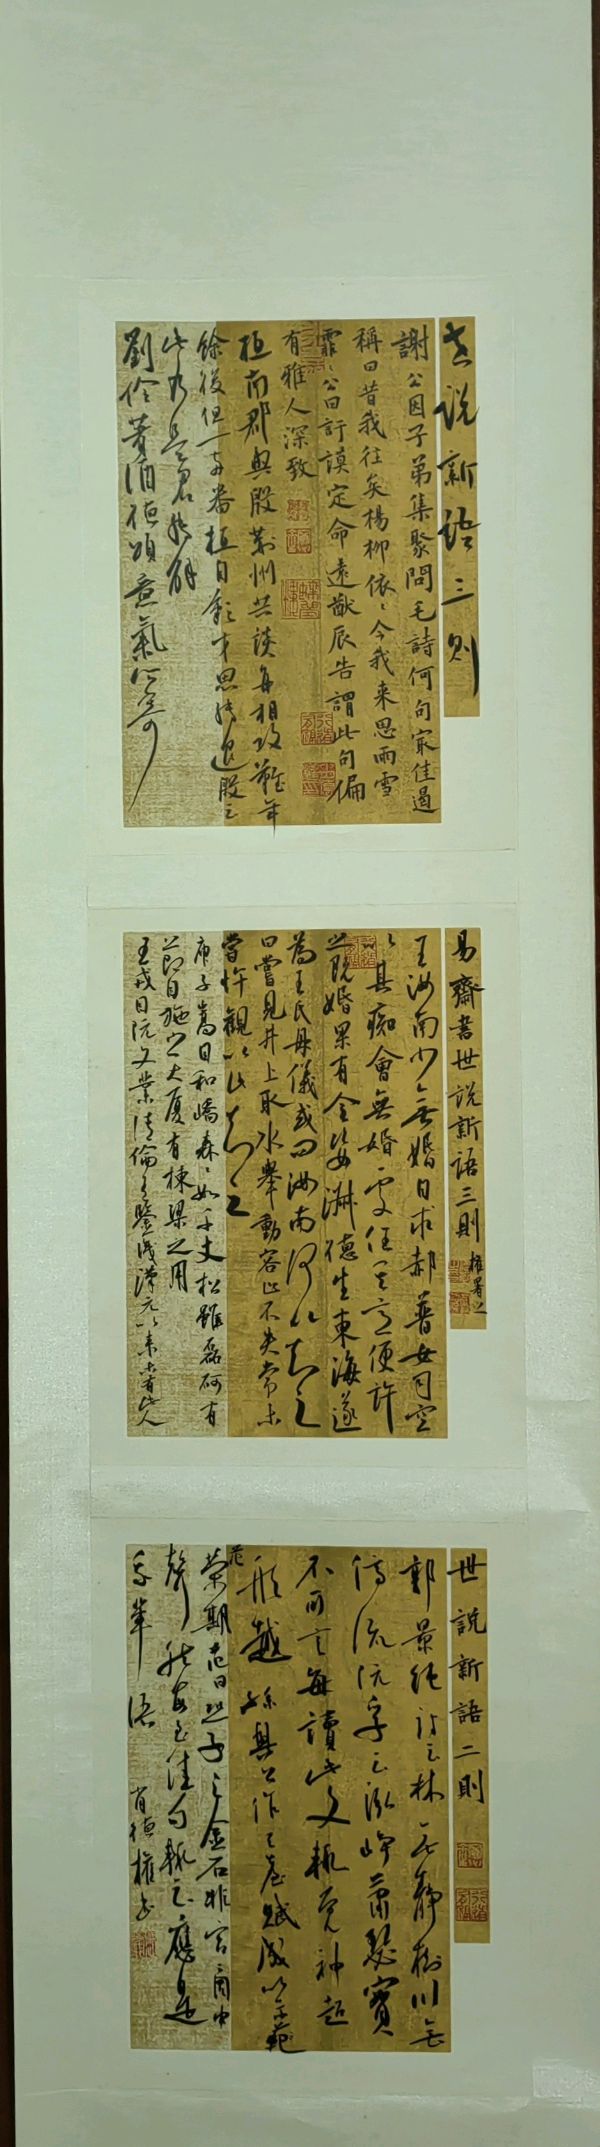 世说新语三则
謝公因子弟集聚問毛詩何句宷佳遏
稱曰昔我往矣楊柳依〻今我来思雨雪
霏〻公曰訏謨定命遠猷辰告謂此句偏
有雅人深致
桓南郡與殷荆州共談每相攻難年
餘後但一兩番桓自歎才思轉退殷云
此乃是君轉解
劉伶著酒德頌意氣所寄
易齋書世說新語三則 權署之
王汝南少無婚自求郝普女司空
以其痴會無婚處任其意便許
之既婚果有令姿淑德生東海遂
為王氏母儀或問汝南何以知之
曰嘗見井上取水舉動容止不失常未
嘗忤觀以此知之
庾子嵩目和嶠森〻如千丈松雖磊砢有
節目施之大厦有棟梁之用
王戎目阮文業清倫有鑒識漢元以来未有此人
世說新語二則
郭景純詩云林無静樹川無
停流阮孚云泓崢蕭瑟實
不可言每讀此文輒覺神超
形越 孫興公作天台賦成以示范
榮期范曰恐子之金石非宫商中
聲然每至佳句輒云應是
我輩語 肖德權書